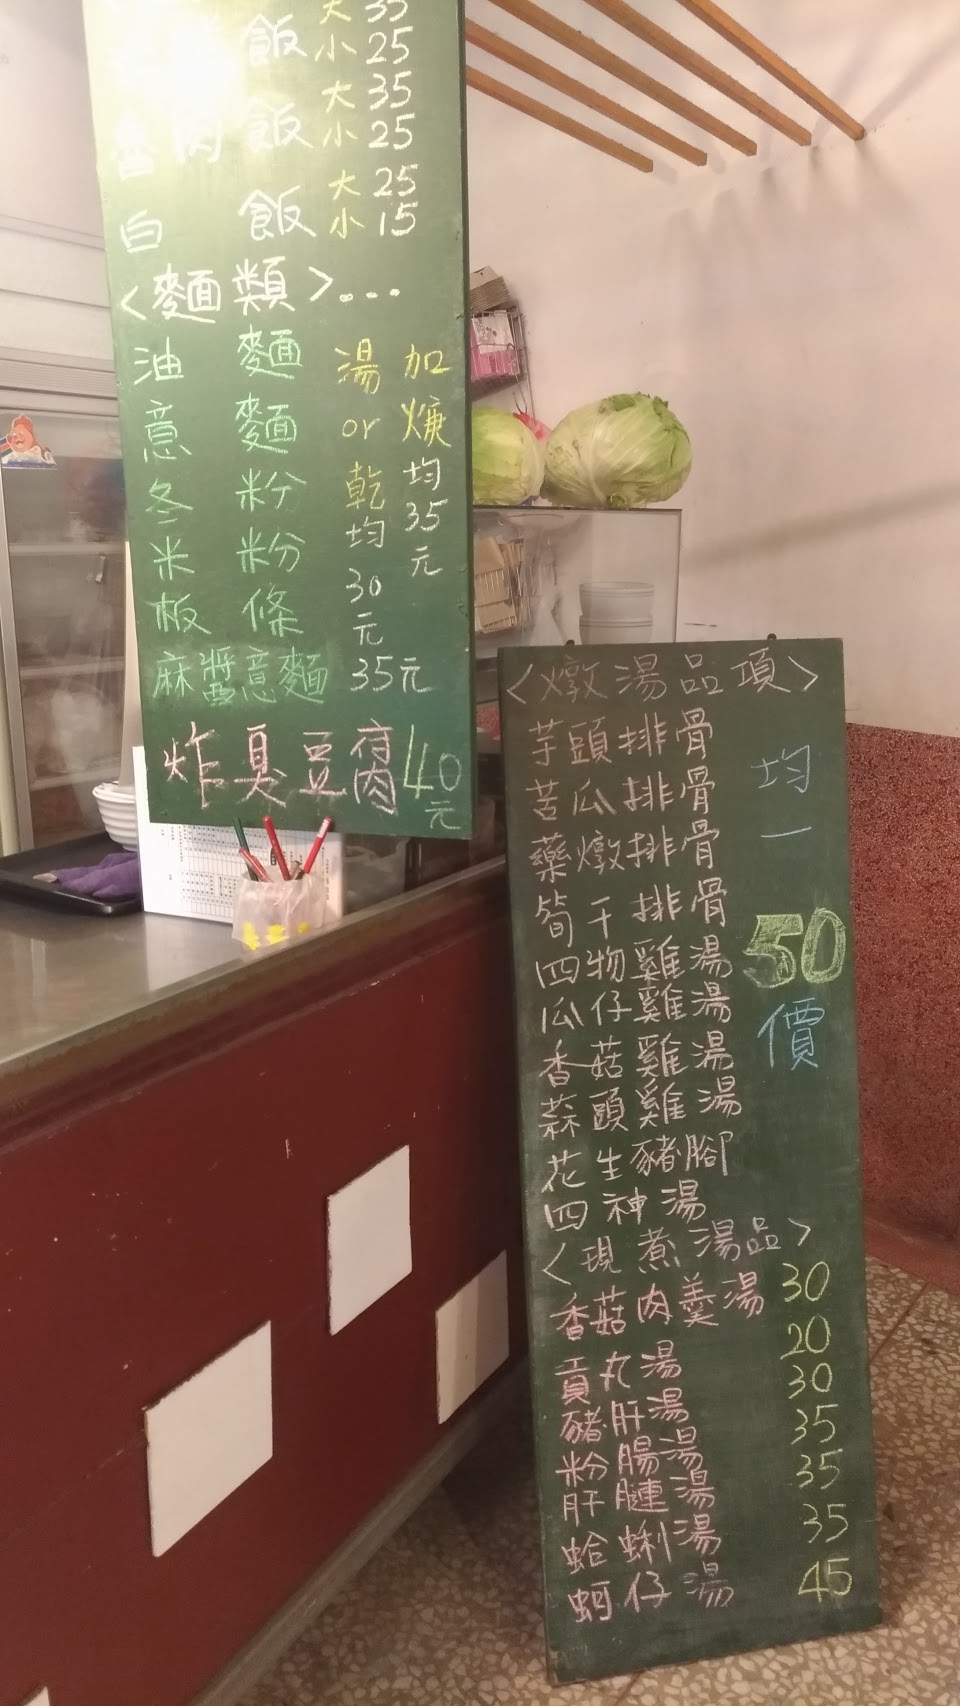 飯 大 35
小 25
魯肉飯 大 35
小 25
白飯 大 25
小 15
<麵類>...
油麵
意麵
冬粉
米粉
板條
湯or乾均30元
加焿均35元
麻醬意麵 35元
炸臭豆腐 40元
<燉湯品項>
芋頭排骨
苦瓜排骨
藥燉排骨
筍干排骨
四物雞湯
瓜仔雞湯
香菇雞湯
蒜頭雞湯
花生豬腳
四神湯
均一50價
<現煮湯品>
香菇肉羹湯 30
貢丸湯 20
豬肝湯 30
粉腸湯 35
肝腱湯 35
蛤蜊湯 35
蚵仔湯 45